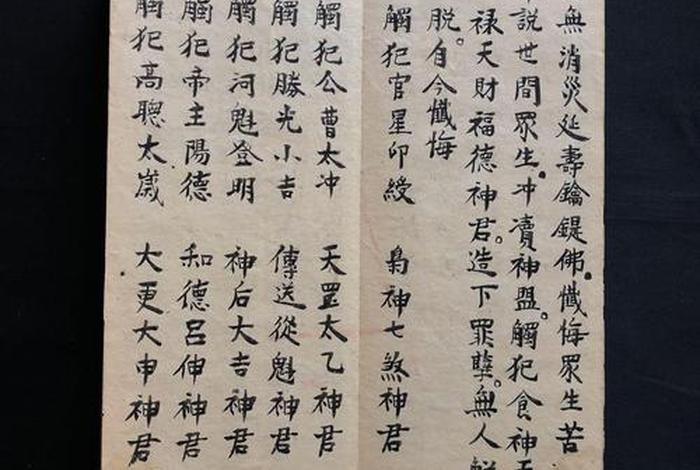 無消災延壽鑰鍉佛。懺悔眾生苦
說世間眾生。冲瀆神盟。觸犯食神天
禄天財福德神君。造下罪孽。無人解
脱。自今懺悔
觸犯官星印綬 梟神七煞神君
觸犯公曹太冲 天罡太乙神君
觸犯勝光小吉 傳送從魁神君
觸犯河魁登明 神后大吉神君
觸犯帝主陽德 和德吕伸神君
觸犯高聰太歲 大更大申神君